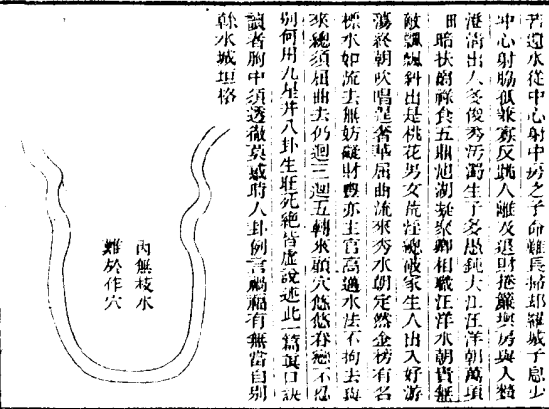 若還水從中心射中房之子命難長掃却羅城子息少
中心射脇孤兼寡反跳人離及退財捲簾與房與人贅
澄清出人多俊秀污濁生子多愚鈍大江汪洋朝萬頃
暗拱廚祿食五鼎池湖凝聚卿相職汪洋水朝貴無
敵飄飄斜出是桃花男女荒淫總破家生人出入好游
蕩終朝吹唱逞奢華屈曲流來秀水朝定然金榜有名
標水如流去無妨礙財豐亦主官高邁水法不拘去與
來總須屈曲去仍迴三迴五轉來顧穴悠悠眷戀不忍
別何用九星幷八卦生旺死絕皆虛說述此一篇真口訣
讀者胸中須透徹莫惑時人卦例言禍福有無當自別
縣水城垣格
內無枝水
難於作穴